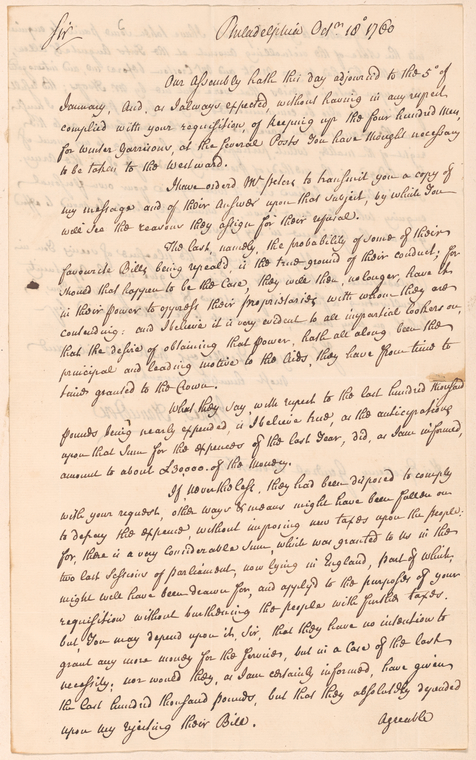 Sir
Philadelphia Octr. 18o 1760
Our Assembly hath this day adjourned to the 5o of
January, And, as I always expected without having in any respect
complied with your requisition, of keeping up the four hundred Men,
for winter Garrisons, at the several Posts You have thought necessary
to be taken to the Westward.
I have orderd Mr. Peters to transmit you a copy of
my message and of their Answer upon that subject, by which You
will see the reasons they assign for their refusal.
The last, namely, the probability of some of their
favourite Bills being repeald, is the true ground of their conduct; for
should that happen to be the Case, they will then, no longer, have it
in their power to oppress their Proprietaries with whom they are
contending: and I believe it is very evident to all impartial lookers on,
that the desire of obtaining that Power, hath all along been the
principal and leading motive to the Aids, they have from time to
time granted to the Crown.
What they say, with respect to the last hundred thousand
pounds being nearly expended, is I believe true, as the anticipations
upon that Sum for the expences of the last Year, did, as I am informed,
amount to about £30000. of the money.
If, nevertheless, they had been disposed to comply
with your request, other ways & means might have been fallen on
to defray the expence, without imposing new taxes upon the people:
for, there is a very considerable Sum, which was granted to us in the
two last Sessions of Parliament, now lying in England, part of which,
might well have been drawn for, and apply'd to the purposes of your
requisition without burthening the people with further taxes.
but, You may depend upon it, Sir, that they have no intention to
grant any more money for the service, but in a Case of the last
necessity. nor would they, as I am certainly informed, have given
the last hundred thousand pounds, but that they absolutely depended
upon my rejecting their Bill.
Agreeable